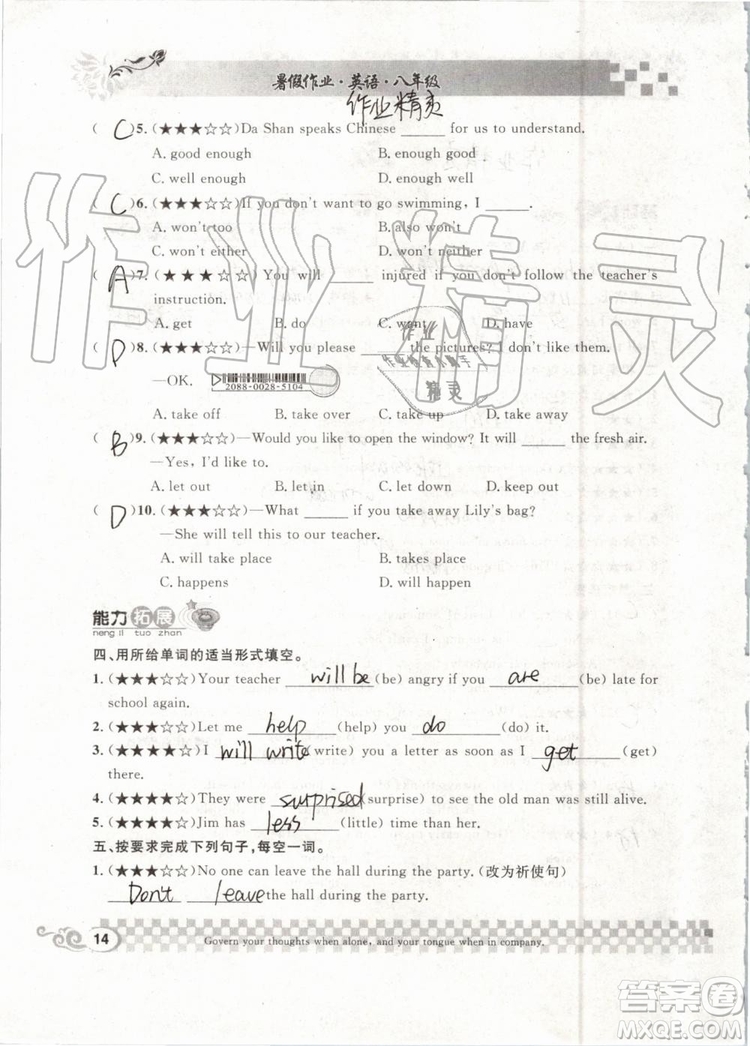 暑假作业·英语·八年级
作业精灵
( C )5.(★★★☆☆)Da Shan speaks Chinese ______ for us to understand.
A. good enough B. enough good
C. well enough D. enough well
( C )6.(★★★☆☆)If you don't want to go swimming, I ______.
A. won't too B. also won't
C. won't either D. won't neither
( A )7.(★★★☆☆)You will ______ injured if you don't follow the teacher's
instruction.
A. get B. do C. want D. have
( D )8.(★★★☆☆)—Will you please ______ the pictures? I don't like them.
—OK.
2088-0028-5104
A. take off B. take over C. take up D. take away
( B )9.(★★★☆☆)—Would you like to open the window? It will ______ the fresh air.
—Yes, I'd like to.
A. let out B. let in C. let down D. keep out
( D )10.(★★★☆☆)—What ______ if you take away Lily's bag?
—She will tell this to our teacher.
A. will take place B. takes place
C. happens D. will happen
能力拓展
neng li tuo zhan
四、用所给单词的适当形式填空。
1.(★★★☆☆)Your teacher will be (be) angry if you are (be) late for
school again.
2.(★★★☆☆)Let me help (help) you do (do) it.
3.(★★★★☆)I will write (write) you a letter as soon as I get (get)
there.
4.(★★★★☆)They were surprised (surprise) to see the old man was still alive.
5.(★★★★☆)Jim has less (little) time than her.
五、按要求完成下列句子,每空一词。
1.(★★★☆☆)No one can leave the hall during the party.(改为祈使句)
Don't leave the hall during the party.
14
Govern your thoughts when alone, and your tongue when in company.
作业精灵
答案圈
MXQE.COM